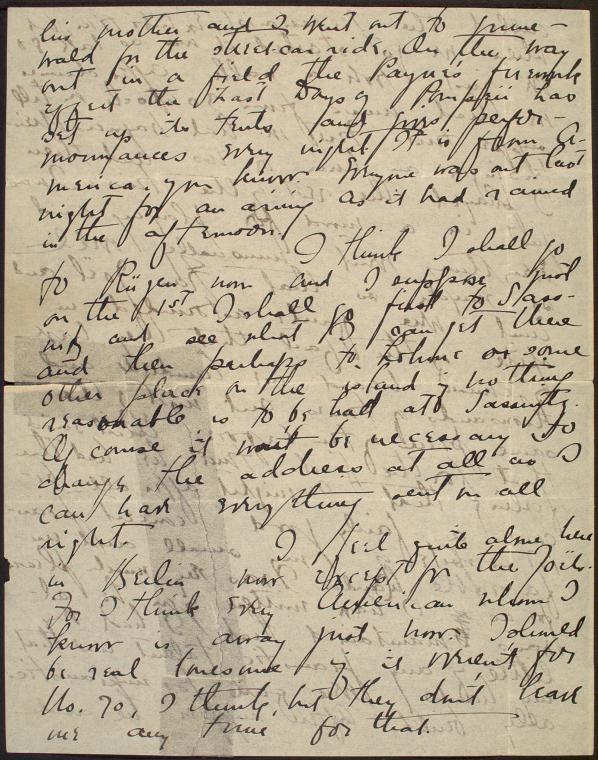 his mother and I went out to Grune-
wald for the street car ride. On the way
out in a field the Payne's firework
effect the "Last Days of Pompeii has
set up its tents and gives perfor-
mountances every night. It is from A-
merica, you know. Everyone was out last
night for an airing as it had rained
in the afternoon.
I think I shall go
to Rügen now and I suppose just
on the 1st. I shall go first to Sass-
nitz and see what I can get there
and then perhaps to Lohme or some
other place on the island if nothing
reasonable is to be had at Sassnitz.
Of course it won't be necessary to
change the address at all as I
can have everything sent on all
right.
I feel quite alone here
in Berlin now except for the
For I think every American whom I
know is away just now. I should
be real lonesome if it weren't for
No. 70, I think, but they don't leave
me any time for that.